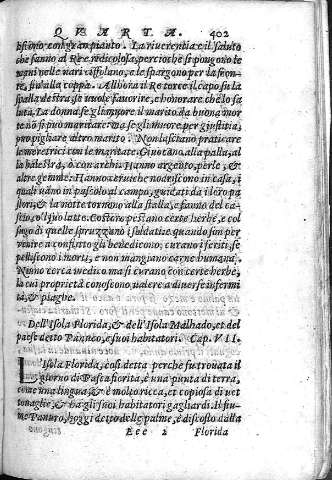 QVARTA. 402
sissono con gran pianto. La riuerentia e il saluto
che fanno al Re è redicolosa, percioche si pongono le
mani nelle nari ciffolano, e le spargono per la fron-
te, fin alla coppa. All'hora il Re torce il capo su la
spalla destra se vuole fauorire, e honorare chi lo sa
luta. La donna se gli muore il marito da buona mor
te nò si può maritare: ma se gli muore per giustitia,
può pigliare altro marito. Non lasciano praticare
le meretrici con le maritate. Giuocano alla palla, al
la balestra, & con archi. Hanno argento, perle, &
altre gemme: Hanno cerui che nodriscono in casa, i
quali vanno in pascolo al campo, guidati da i loro pa
stori, & la notte tornono alla stalla, e fanno del ca-
scio, ò il suo latte. Costoro pestano certe herbe, e col
sugo di quelle spruzzano i soldati: e quando son per
venire a conflitto gli benedicono, curano i feriti, se
pelliscono i morti, e non mangiano carne humana.
Niuno cerca medico ma si curano con certe herbe,
la cui proprietà conoscono valere a diuerse infermi
tà, & piaghe.
Dell'Isola Florida, & dell'Isola Malhado, et del
paese detto Panuco, e suoi habitatori. Cap. VII.
L'Isola Florida, cosi detta perche fu trouata il
giorno di Pasca fiorita, è una punta di terra,
come una lingua, & è molto ricca, et copiosa di vet
touaglie, & ha gli suoi habitatori gagliardi. Il fiu-
me Panuco, hoggi detto delle palme, è discosto dalla
Eee 2 Florida